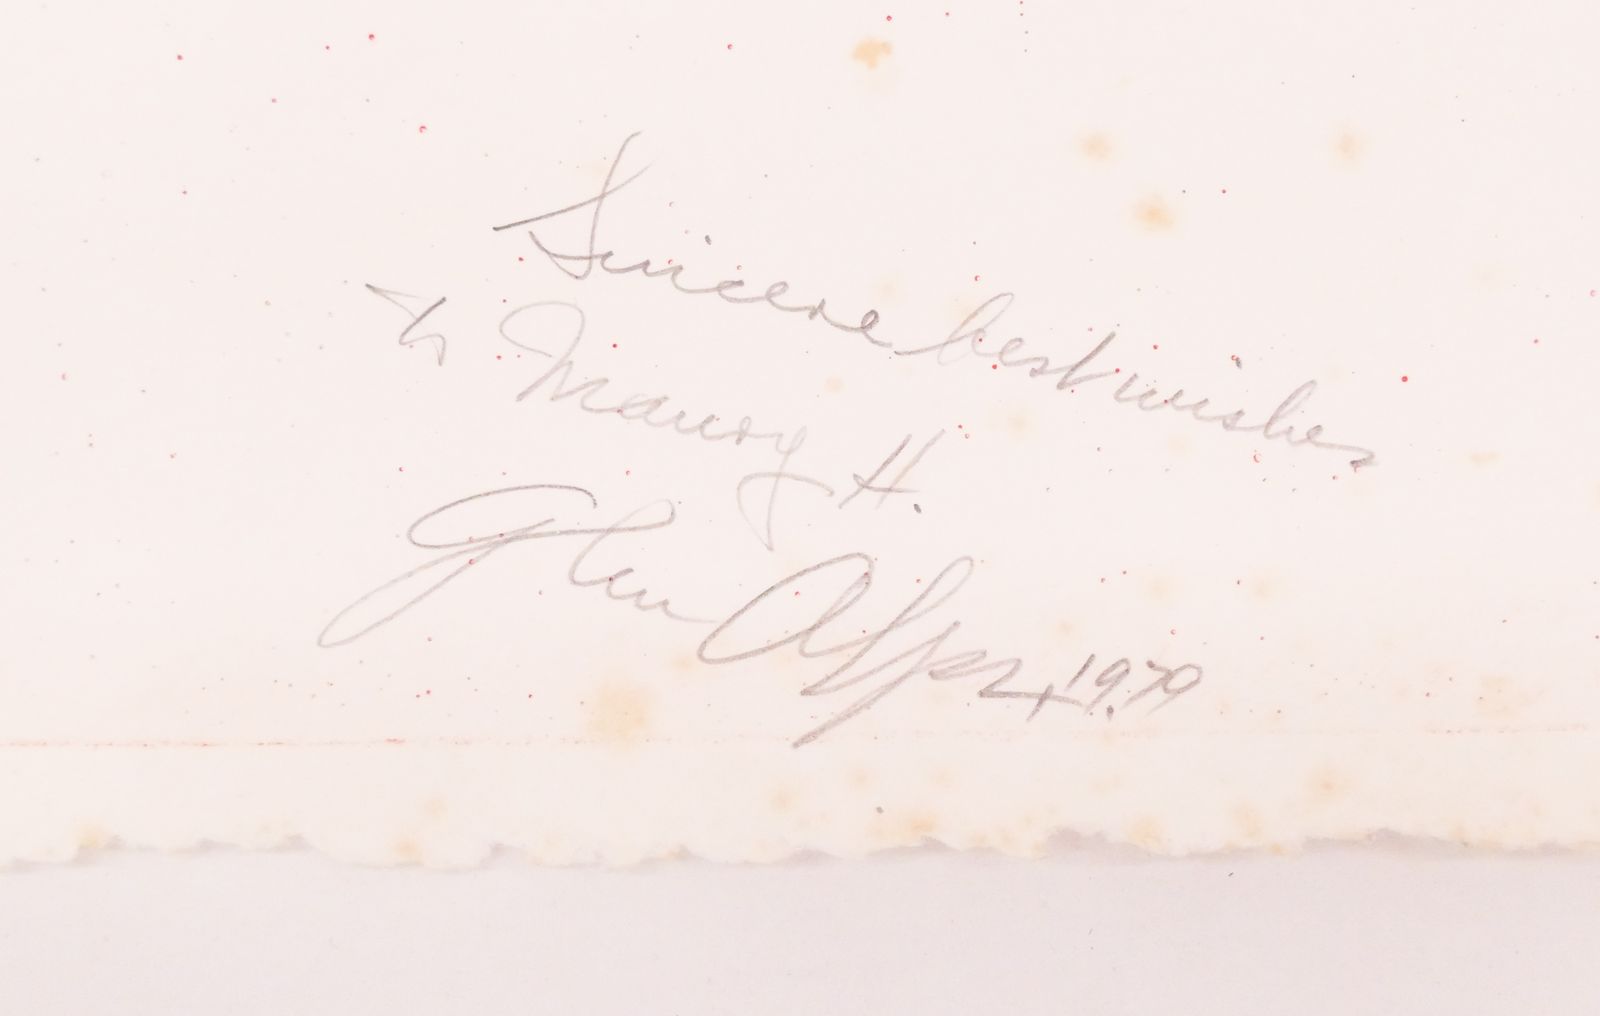 Sincere best wishes
to Maury H.
Glen Alps, 1979